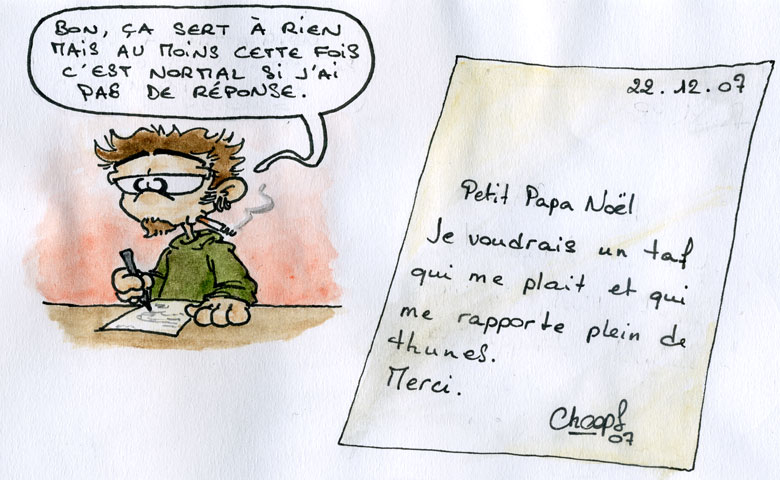 BON, ÇA SERT À RIEN
MAIS AU MOINS CETTE FOIS
C'EST NORMAL SI J'AI
PAS DE RÉPONSE.
22.12.07
Petit Papa Noël
Je voudrais un taf
qui me plait et qui
me rapporte plein de
thunes.
Merci.
Choopf
07